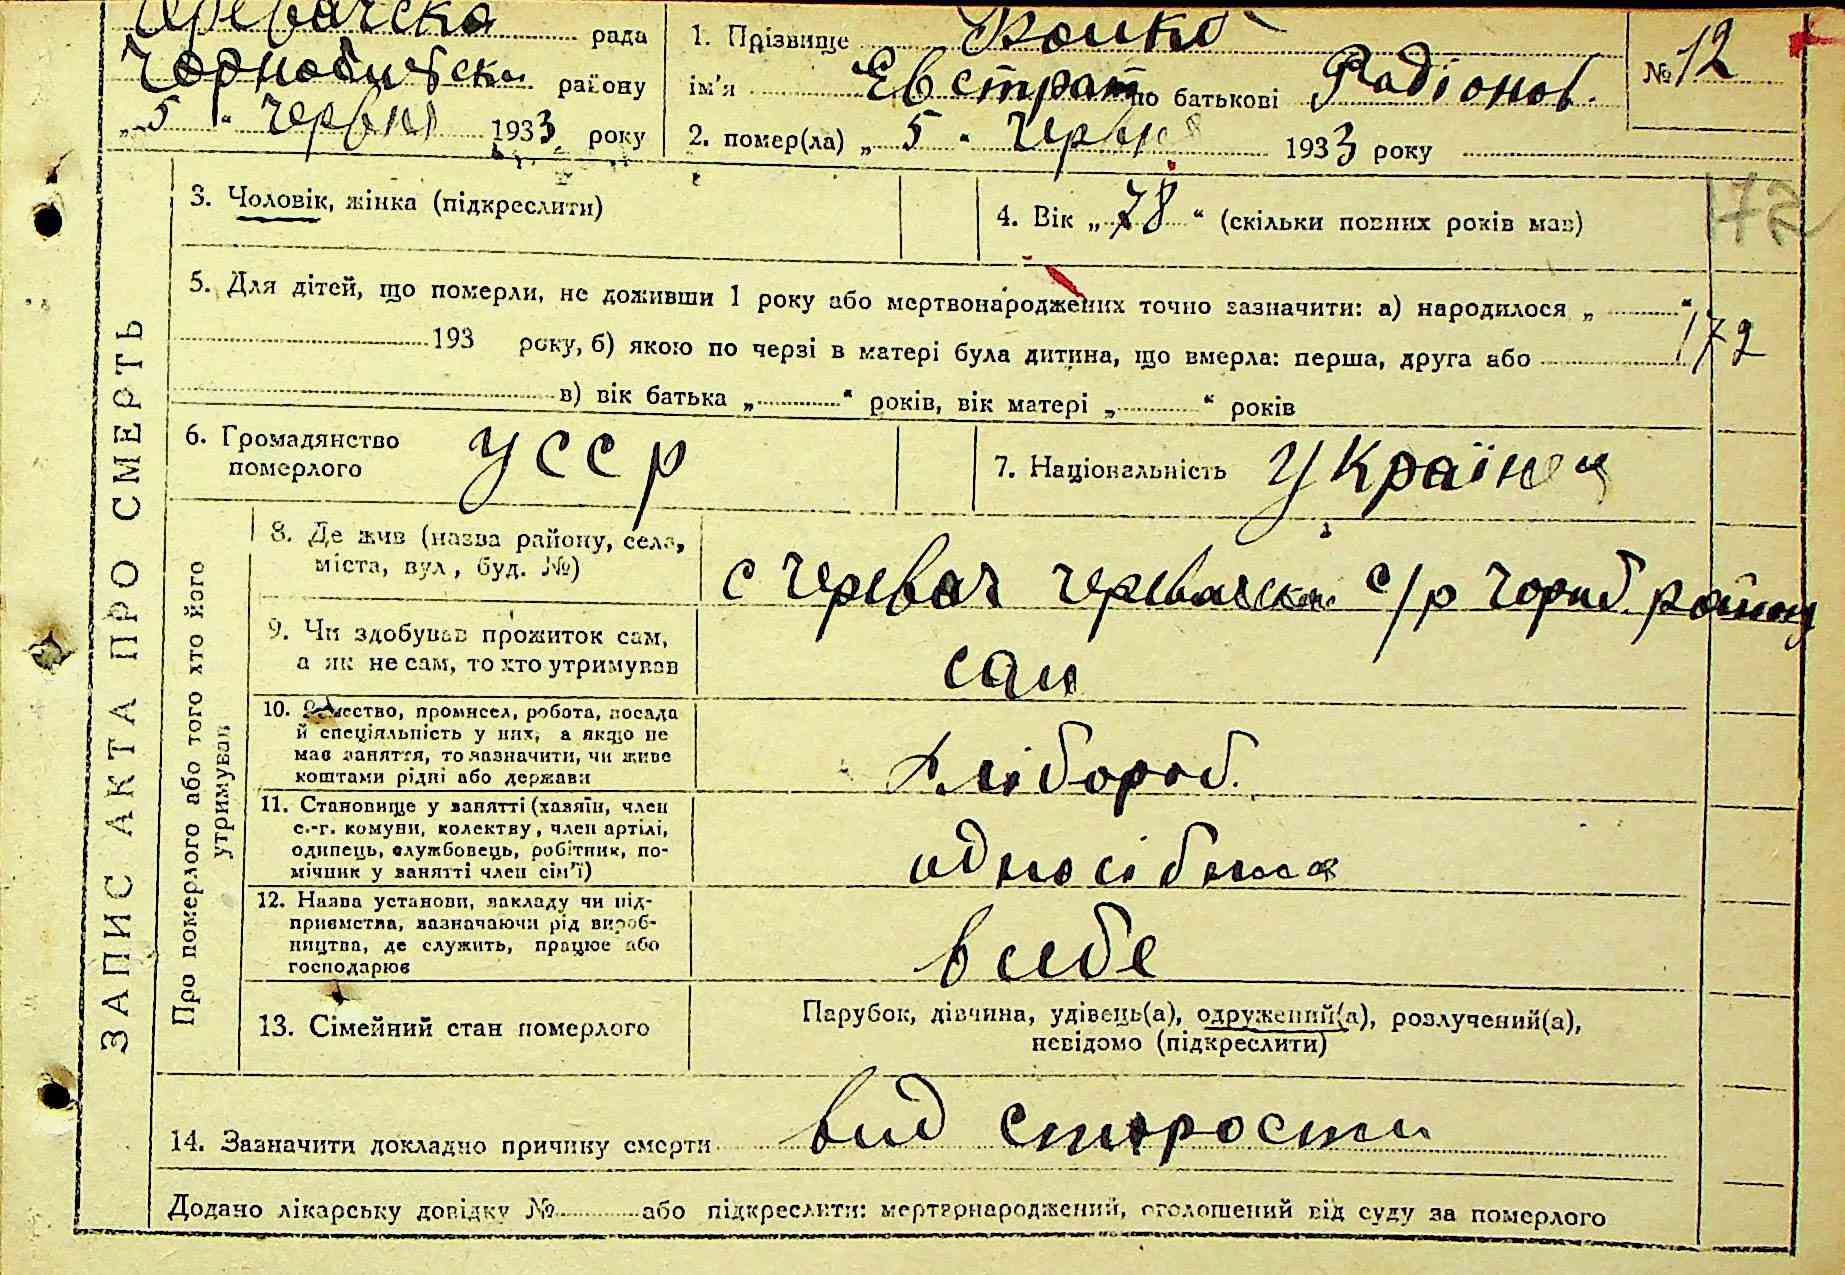 Черевачска рада
Чорнобильськ району
„ 5 “ Червня 1933 року
1. Прізвище Бойко
ім'я Евстрат по батькові Радіонов.
№ 12
2. помер(ла) „ 5 “ Червня 1933 року
172
ЗАПИС АКТА ПРО СМЕРТЬ
3. Чоловік, жінка (підкреслити)
4. Вік „ 78 “ (скільки повних років мав)
5. Для дітей, що померли, не доживши 1 року або мертвонароджених точно зазначити: а) народилося „ “
193 року, б) якою по черзі в матері була дитина, що вмерла: перша, друга або
172
в) вік батька „ “ років, вік матері „ “ років
6. Громадянство
померлого
УССР
7. Національність Українец
Про померлого або того хто його
утримував
8. Де жив (назва району, села,
міста, вул., буд. №)
с Черевач Черевачска с/р Чорноб району
9. Чи здобував прожиток сам,
а як не сам, то хто утримував
сам
10. Ремество, промисел, робота, посада
й спеціяльність у них, а якщо не
мав заняття, то зазначити, чи живе
коштами рідні або держави
хлібороб.
11. Становище у занятті (хазяїн, член
с.-г. комуни, колектву, член артілі,
одинець, службовець, робітник, по-
мічник у занятті член сім'ї)
односібник
12. Назва установи, закладу чи під-
приємства, зазначаючи рід вироб-
ництва, де служить, працює або
господарює
в себе
13. Сімейний стан померлого
Парубок, дівчина, удівець(а), одружений(а), розлучений(а),
невідомо (підкреслити)
14. Зазначити докладно причину смерти вид старости
Додано лікарську довідку № або підкреслити: мертвонароджений, оголошений від суду за померлого